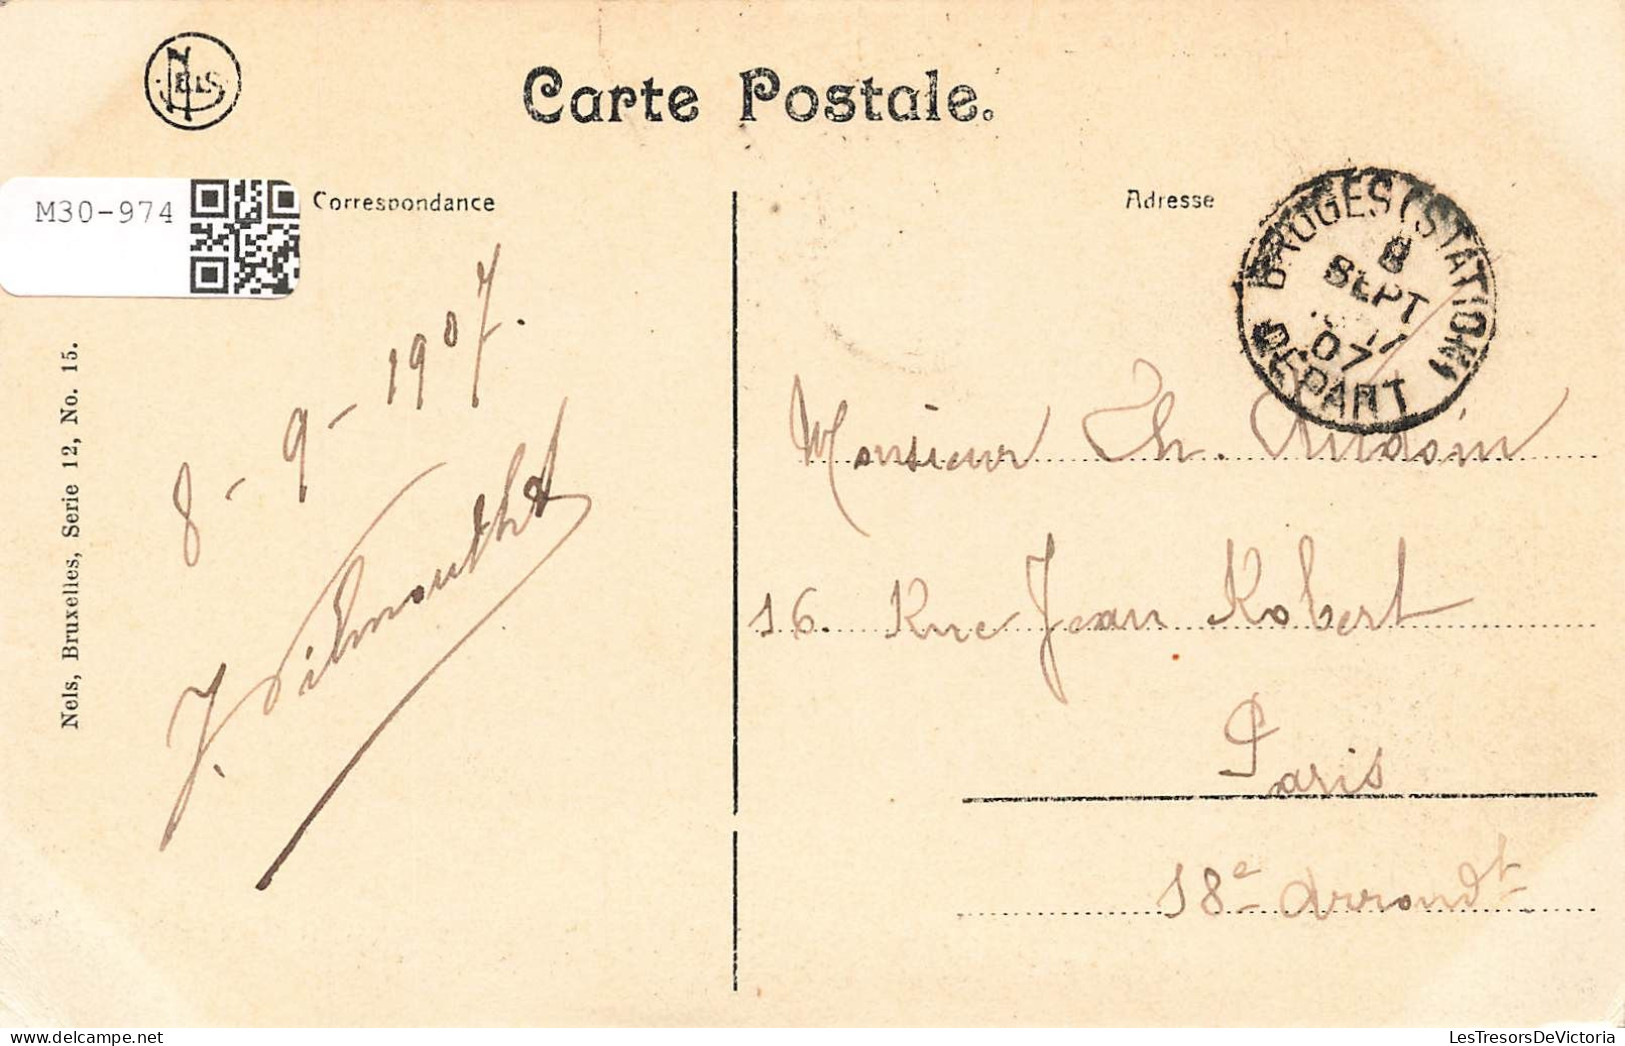 NELS
Carte Postale.
M30-974
Correspondance
Adresse
BRUGES (STATION)
8
SEPT
07
DEPART
8-9-1907.
J. Vilmouth
Nels, Bruxelles, Serie 12, No. 15.
Monsieur Th. Audoin
16. Rue Jean Robert
Paris
18e Arrondt
LesTresorsDeVictoria
delcampe.net